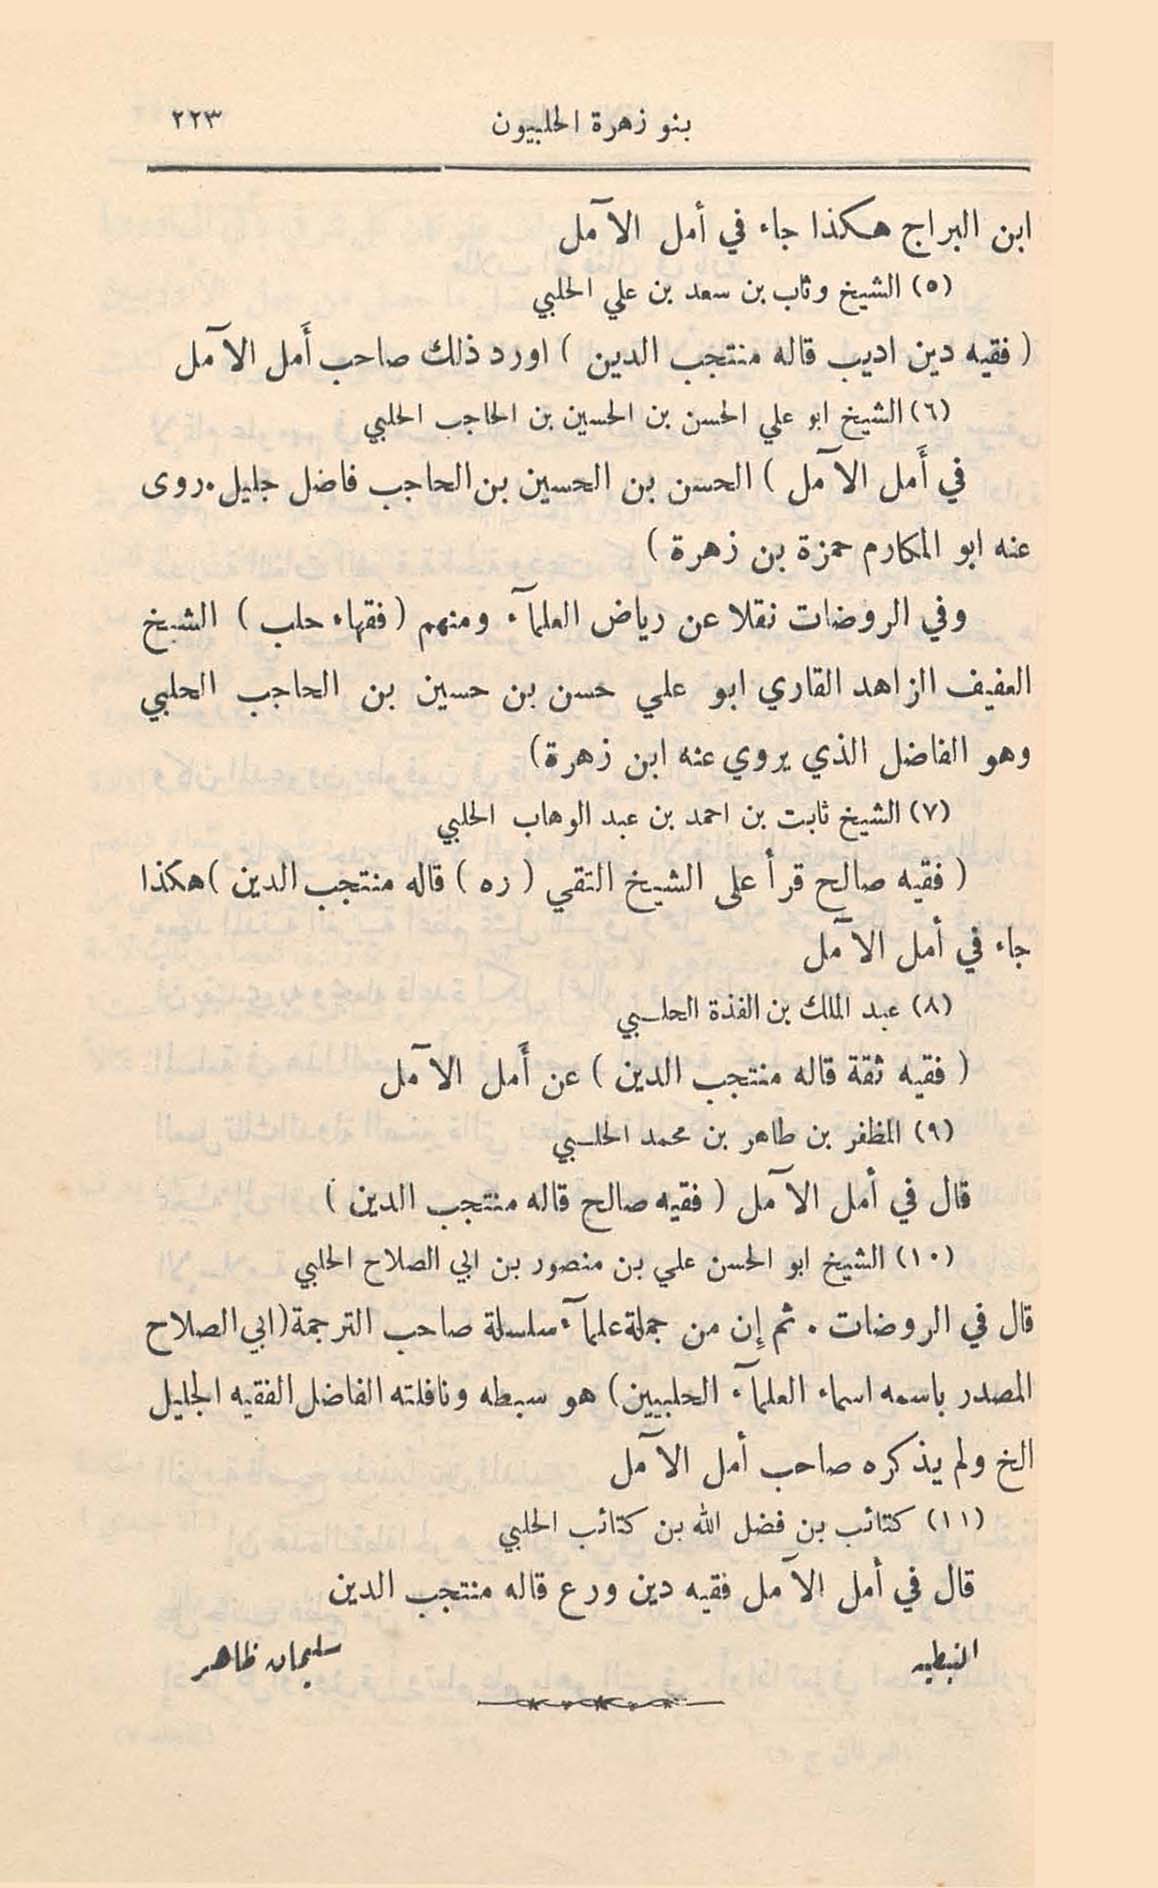 بنو زهرة الحلبيون ٢٢٣
ابن البراج هكذا جاء في أمل الآمل
(٥) الشيخ وثاب بن سعد بن علي الحلبي
( فقيه دين اديب قاله منتجب الدين ) اورد ذلك صاحب أَمل الآمل
(٦) الشيخ ابو علي الحسن بن الحسين بن الحاجب الحلبي
في أَمل الآمل ) الحسن بن الحسين بن الحاجب فاضل جليل . روى
عنه ابو المكارم حمزة بن زهرة )
وفي الروضات نقلا عن رياض العلمآء ومنهم ( فقهاء حلب ) الشيخ
العفيف الزاهد القاري ابو علي حسن بن حسين بن الحاجب الحلبي
وهو الفاضل الذي يروي عنه ابن زهرة )
(٧) الشيخ ثابت بن احمد بن عبد الوهاب الحلبي
( فقيه صالح قرأ على الشيخ التقي ( ره ) قاله منتجب الدين ) هكذا
جاء في أمل الآمل
(٨) عبد الملك بن الفذة الحلبي
( فقيه ثقة قاله منتجب الدين ) عن أَمل الآمل
(٩) المظفر بن طاهر بن محمد الحلبي
قال في أمل الآمل ( فقيه صالح قاله منتجب الدين )
(١٠) الشيخ ابو الحسن علي بن منصور بن ابي الصلاح الحلبي
قال في الروضات . ثم إن من جملة علمآء سلسلة صاحب الترجمة ( ابي الصلاح
المصدر باسمه اسماء العلمآء الحلبيين ) هو سبطه ونافلته الفاضل الفقيه الجليل
الخ ولم يذكره صاحب أمل الآمل
(١١) كتائب بن فضل الله بن كتائب الحلبي
قال في أمل الآمل فقيه دين ورع قاله منتجب الدين
النبطيه سليمان ظاهر